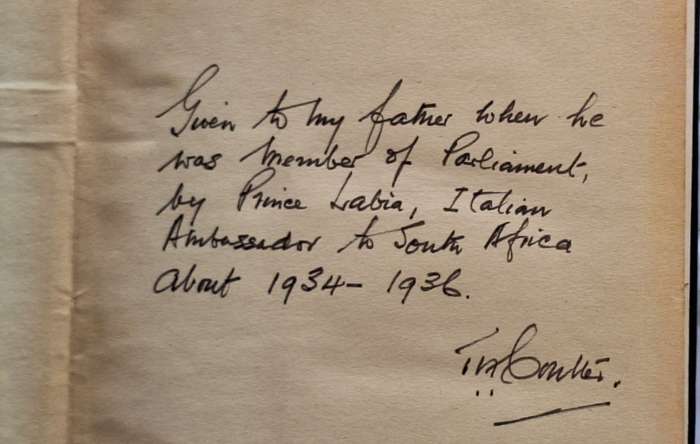 Given to my father when he
was Member of Parliament,
by Prince Labia, Italian
Ambassador to South Africa
About 1934 - 1936.
Coulter.